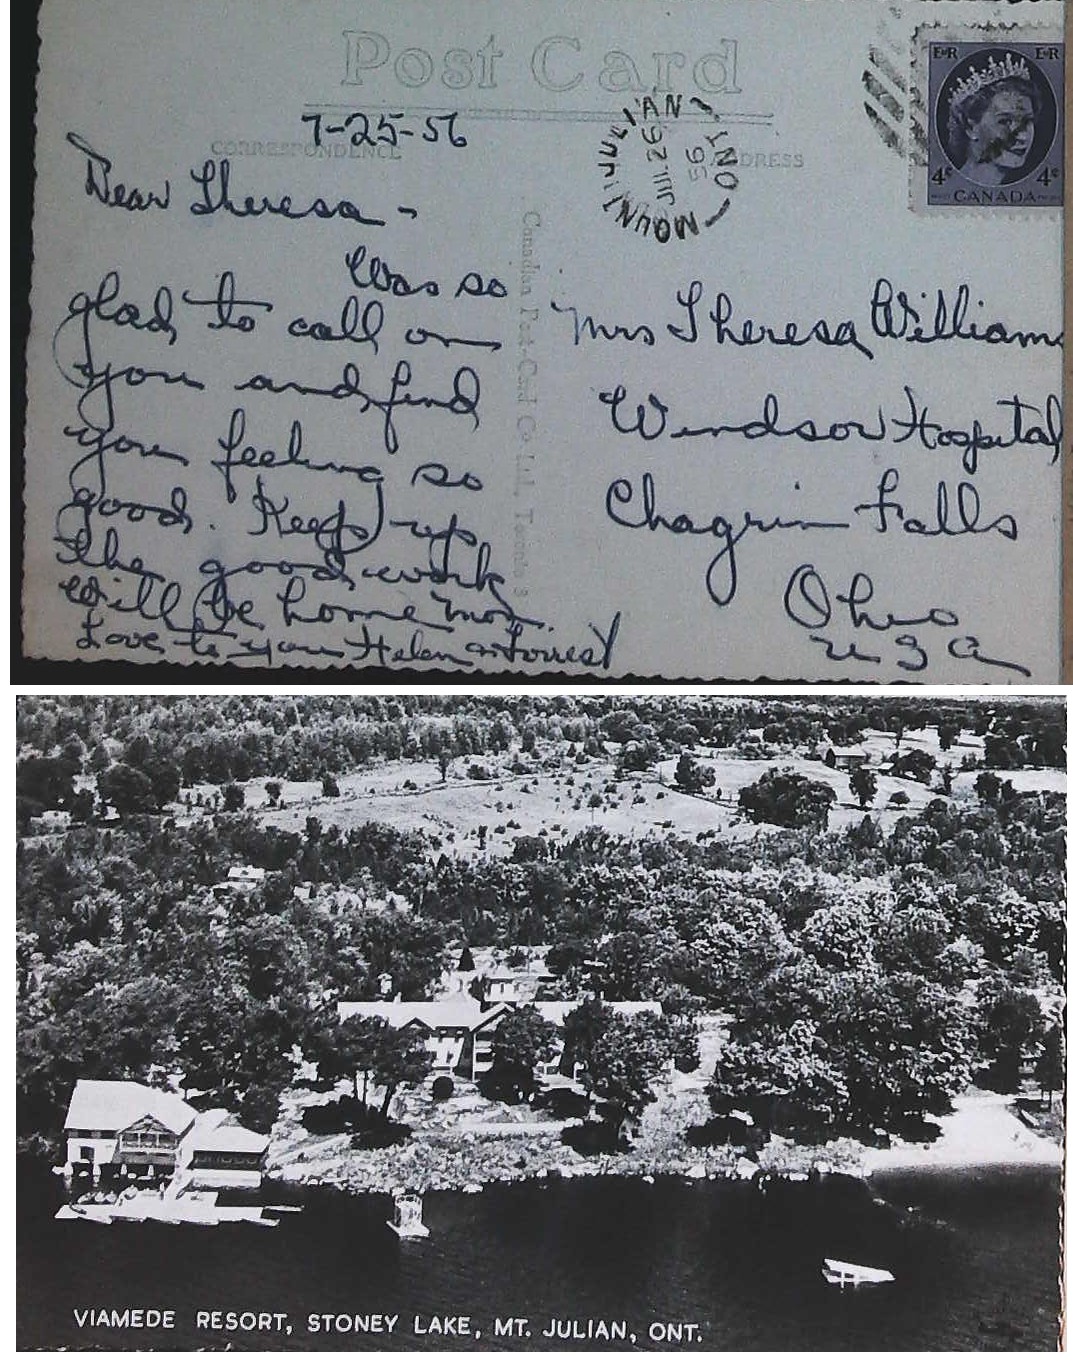 Post Card
7-25-56
CORRESPONDENCE
ADDRESS
MOUNT JULIAN
ONT
JUL 26
56
E R E R
4¢ 4¢
CANADA
Dear Theresa -
Was so
glad to call on
you and find
you feeling so
good. Keep up
the good work
Will be home mon.
Love to you Helen & Forrest
Canadian Post Card Co. Ltd., Toronto 3
Mrs Theresa Williams
Windsor Hospital
Chagrin Falls
Ohio
USA
VIAMEDE RESORT, STONEY LAKE, MT. JULIAN, ONT.